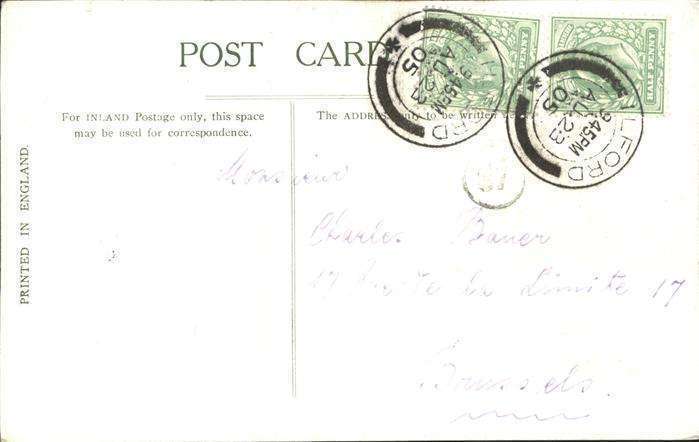 POST CARD
For INLAND Postage only, this space
may be used for correspondence.
The ADDRESS only to be written
PRINTED IN ENGLAND.
HALF PENNY
ILFORD
9.45PM
AU 23
05
ILFORD
9.45PM
AU 23
05
Monsieur
Charles Bauer
17 Rue de la Limite 17
Brussels.